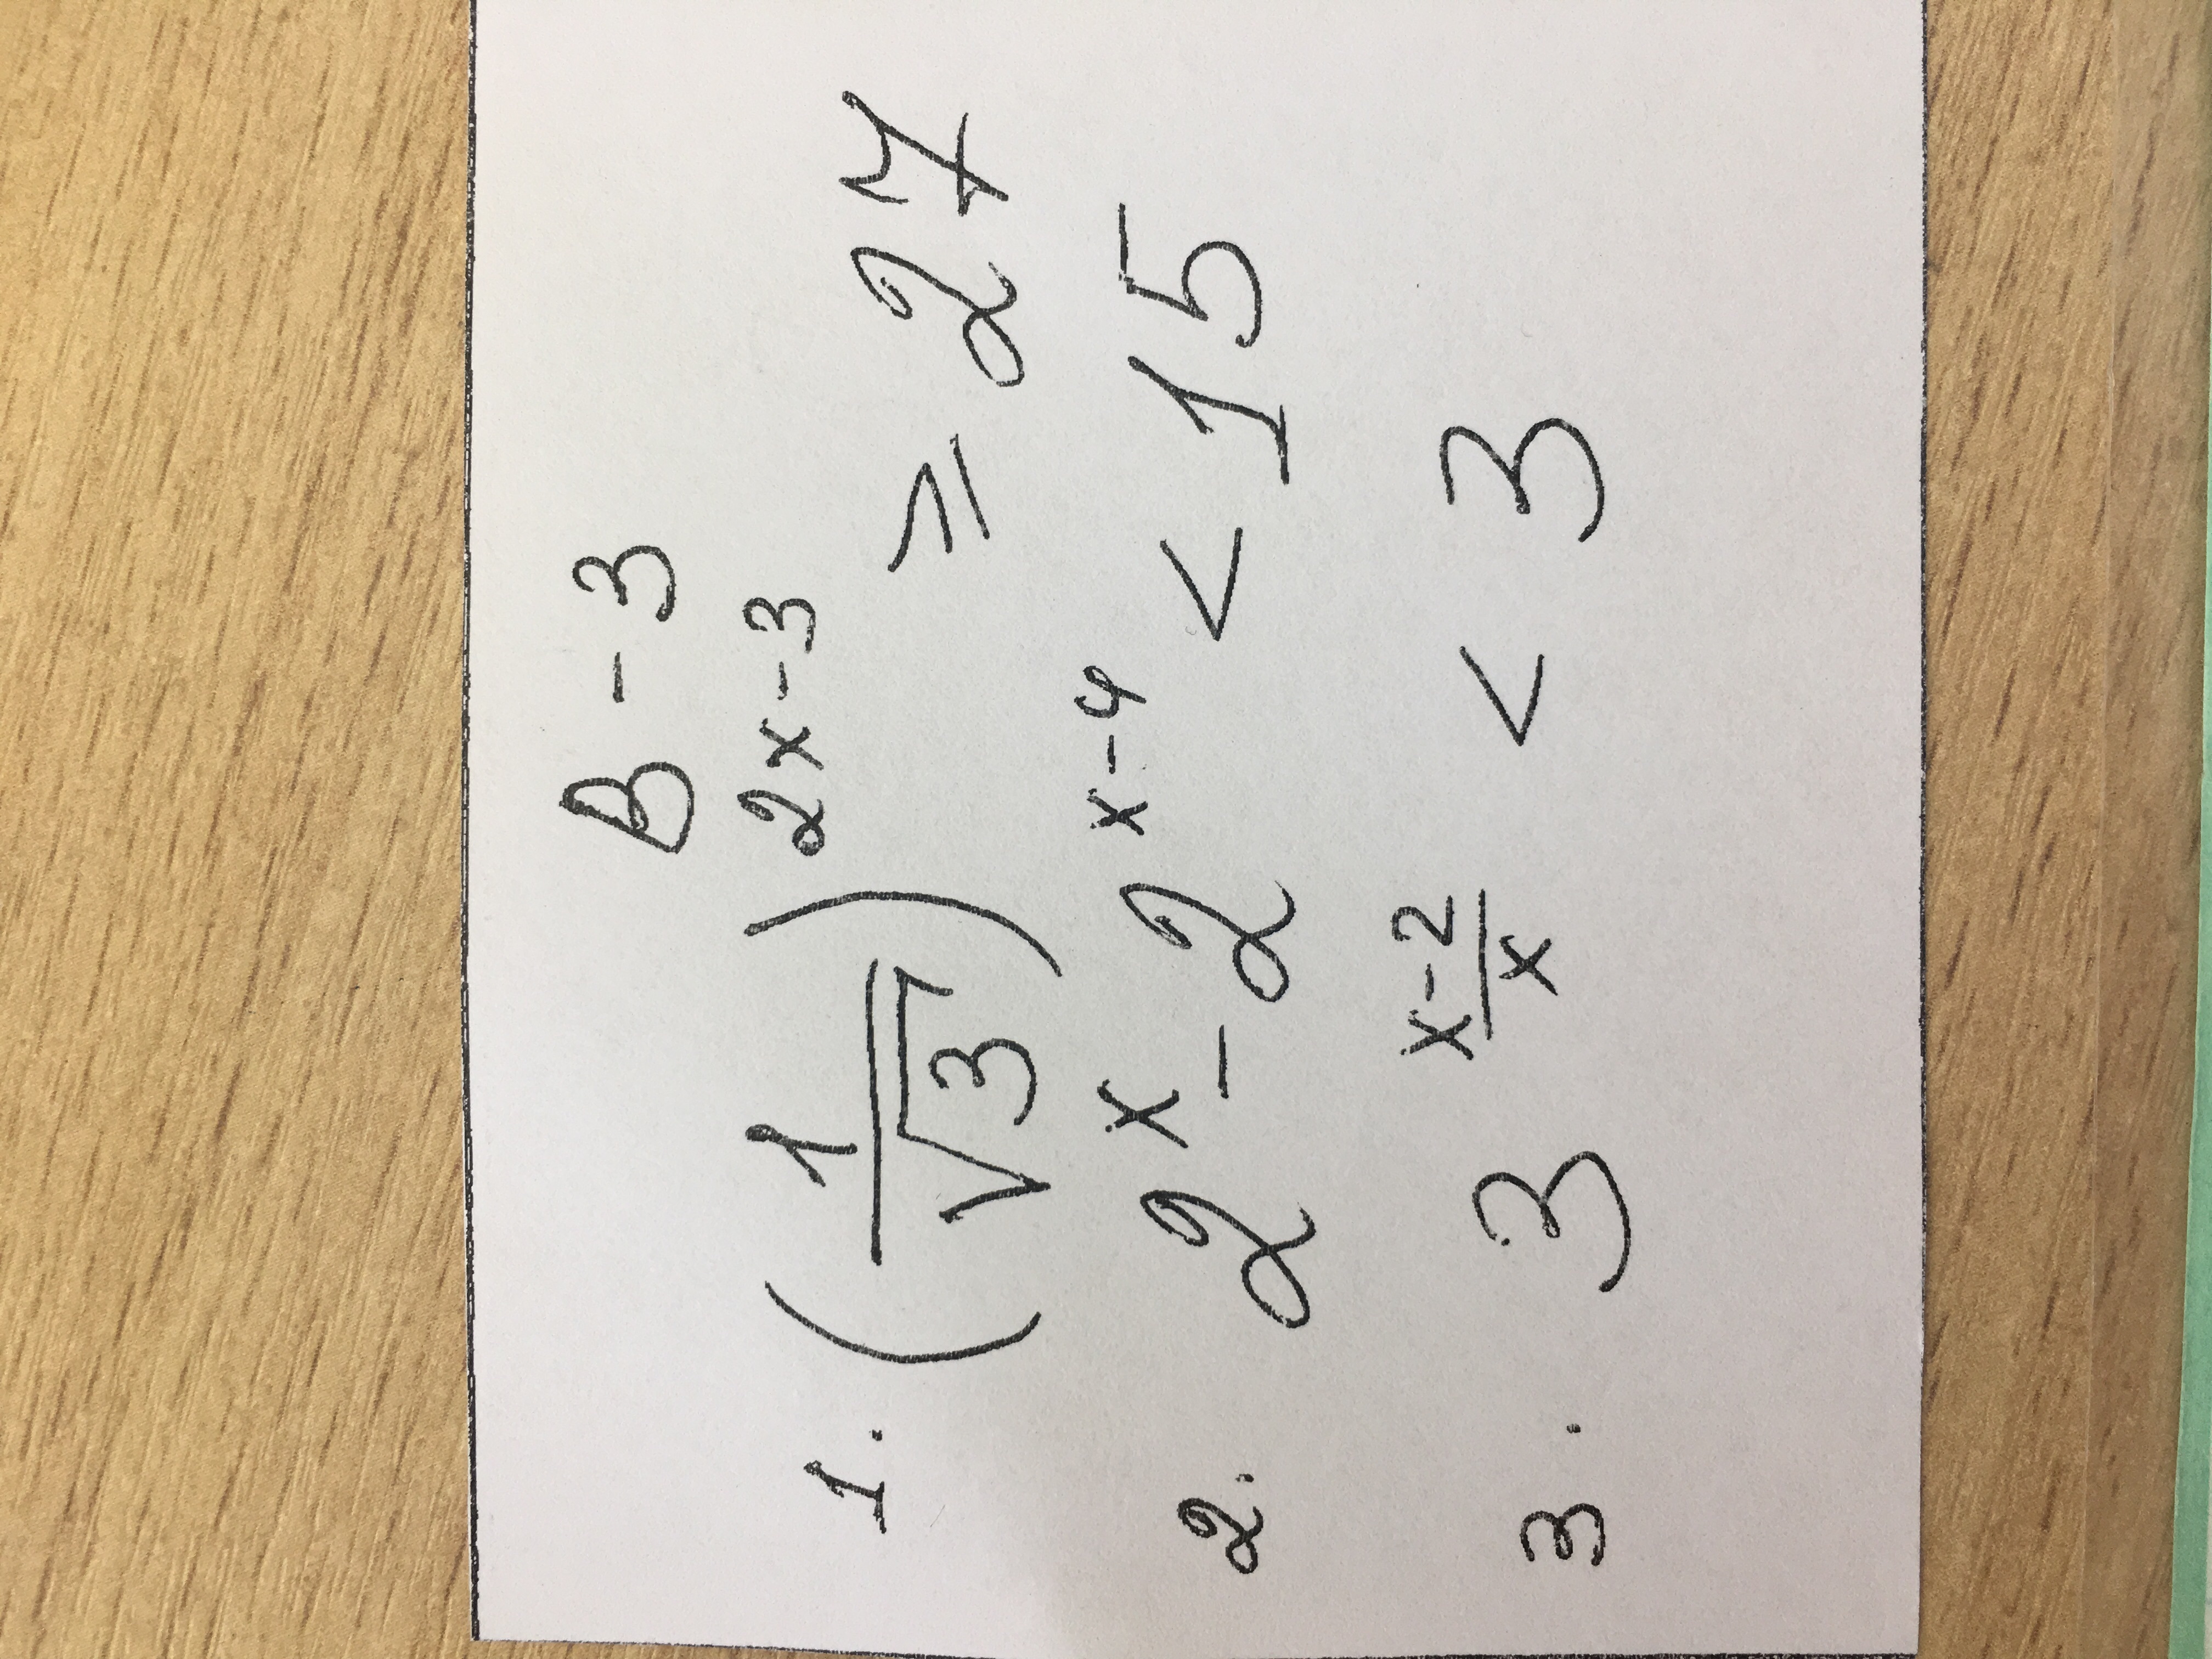 В-3
1. (1/√3)^(2x-3) ⩾ 27
2. 2^x - 2^(x-4) < 15
3. 3^((x-2)/x) < 3